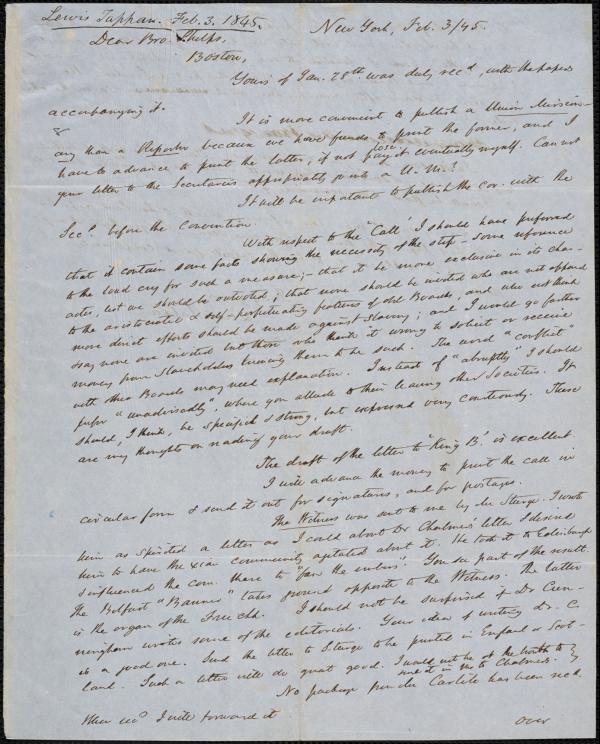 Lewis Tappan. Feb. 3. 1845.
New York, Feb. 3/45.
Dear Bro. Phelps,
Boston,
Yours of Jan. 28th was duly recd, with the papers
accompanying it.
It is more convenient to publish a Union Mission-
ary than a Reporter because we have funds to print the former, and I
& have to advance to print the latter, if not lose pay it eventually myself. Can not
your letter to the Secretaries appropriately go into a U. M.?
It will be important to publish the cor. with the
Secs before the Convention.
With respect to the 'Call' I should have preferred
that it contain some facts showing the necessity of the step - some reference
to the loud cry for such a measure; - that it be more exclusive in its char-
acter, lest we should be outvoted; that more should be invited who are not opposed
to the aristocratical & self-perpetuating features of old Boards, and who wd think
more direct efforts should be made against Slavery; and I would go farther
& say none are invited but those who think it wrong to solicit or receive
money from Slaveholders knowing them to be such. The word "conflict"
with other Boards may need explanation. Instead of "abruptly" I should
prefer "unadvisedly", where you allude to their leaving other Societies. It
should, I think, be specific & strong, but expressed very courteously. These
are my thoughts on reading your draft.
The draft of the letter to 'King B.' is excellent
I will advance the money to print the call in
circular form & send it out for signatures, and for postages.
The Witness was sent to me by Mr Sturge. I wrote
him as spirited a letter as I could about Dr Chalmers' letter & desired
him to have the xian community agitated about it. He took it to Edinburgh
& influenced the com. there to "fan the embers". You see part of the result.
The Belfast "Banner" takes ground opposite to the Witness. The latter
is the organ of the Free Chh. I should not be surprised if Dr Cun-
ningham wrote some of the editorials. Your idea of writing Dr. C.
is a good one. Send the letter to Sturge to be printed in England or Scot-
land. Such a letter will do great good. I would not be at the trouble to
send it in ms to Chalmers.
No package from Carlile has been recd.
When recd I will forward it
over